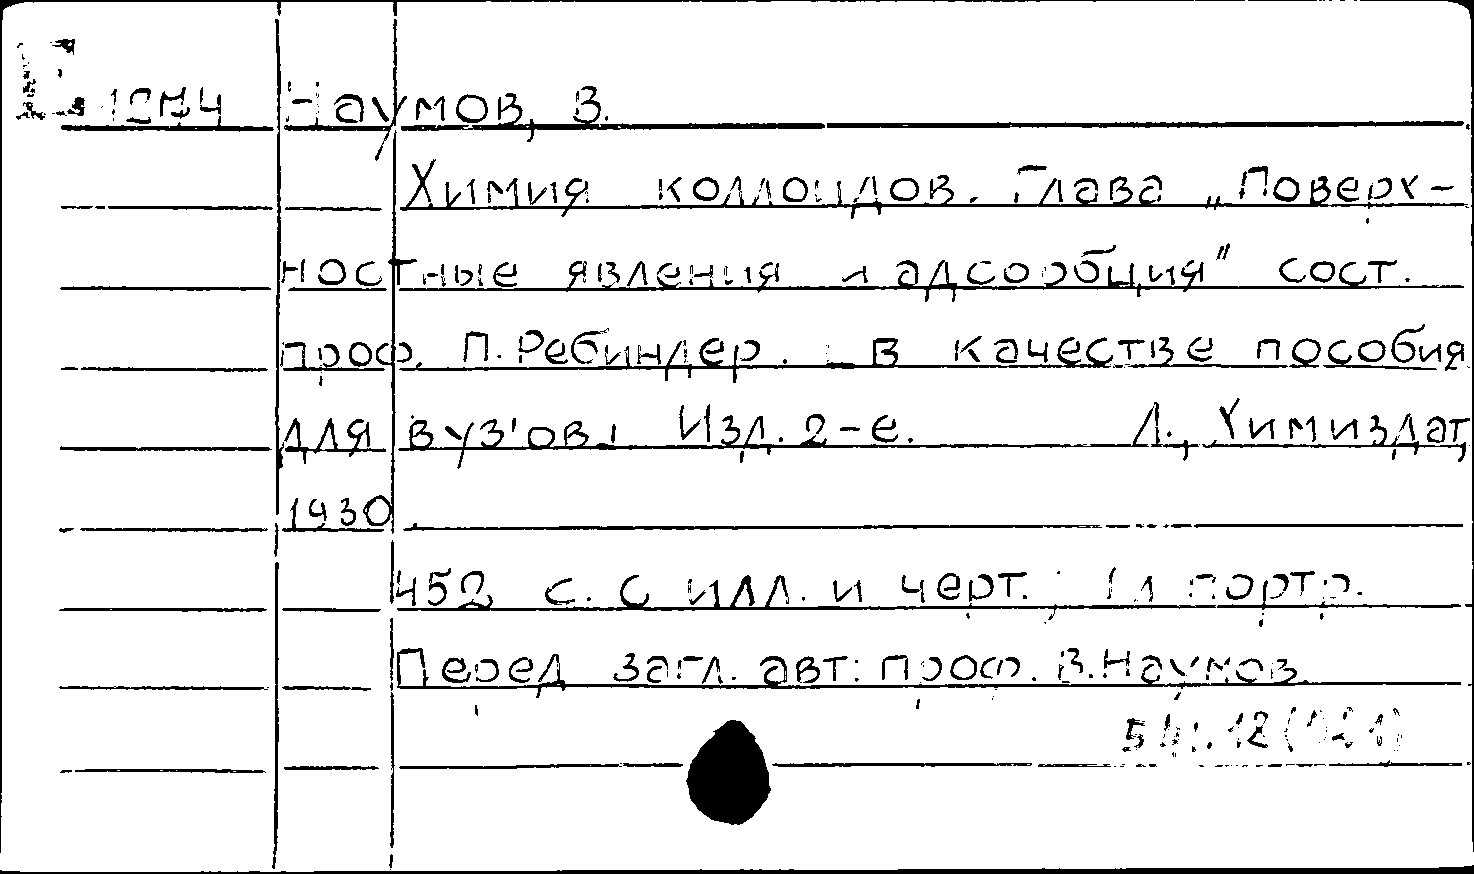 Наумов, В.
Химия коллоидов. Глава „Поверх-
ностные явления и адсорбция" сост.
проф. П. Ребиндер. в качестве пособия
для вуз'ов. Изд. 2-е. Л., Химиздат,
1930.
452 с. с илл. и черт.; 1 л портр.
Перед загл. авт: проф. В. Наумов.